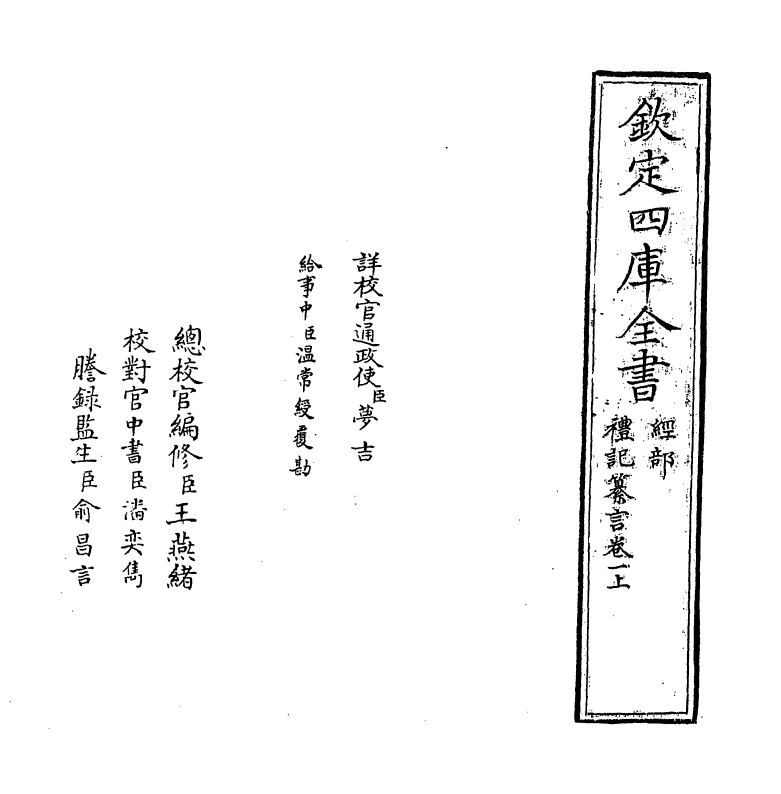 欽定四庫全書
經部
禮記纂言卷一上
詳校官通政使臣夢吉
給事中臣温常綬覆勘
總校官編修臣王燕緒
校對官中書臣潘奕雋
謄録監生臣俞昌言